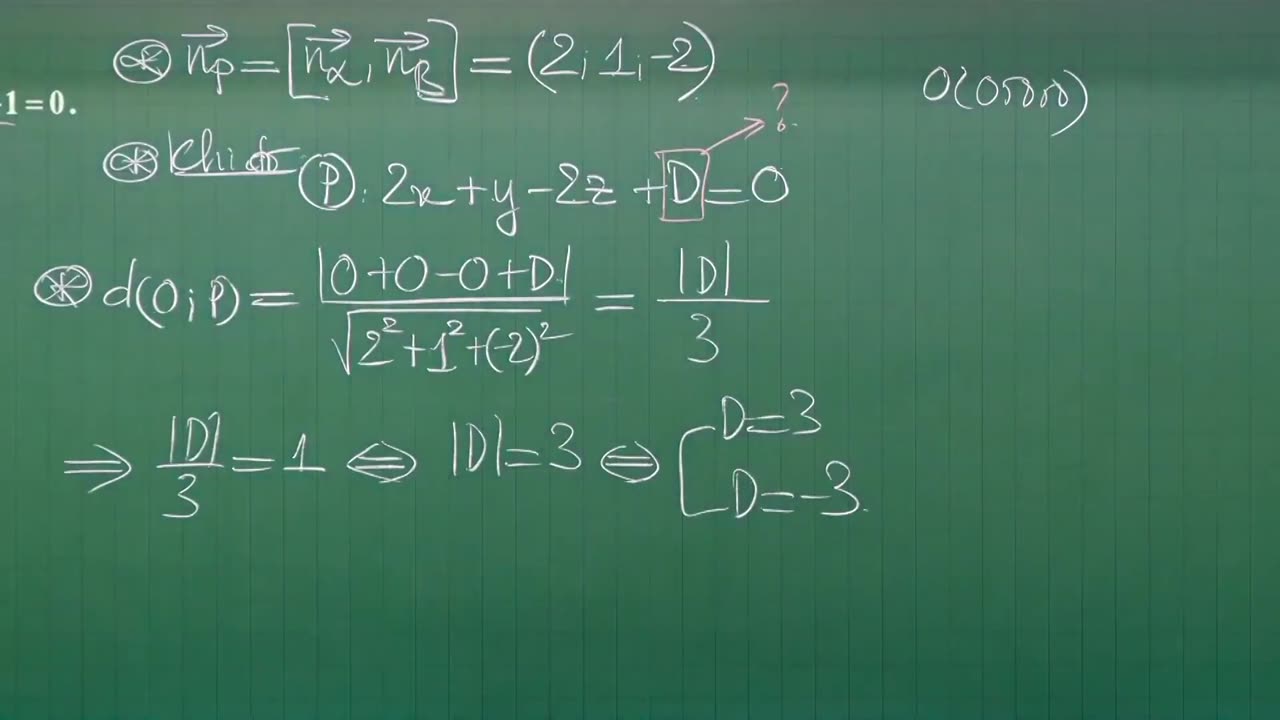 ⊛ n⃗_P = [n⃗_α, n⃗_β] = (2; 1; -2)
O(0;0;0)
1 = 0.
⊛ Khi đó (P): 2x + y - 2z + D = 0
?
⊛ d(O; P) = |0 + 0 - 0 + D| / √(2² + 1² + (-2)²) = |D| / 3
⇒ |D| / 3 = 1 ⇔ |D| = 3 ⇔ [ D = 3
D = -3